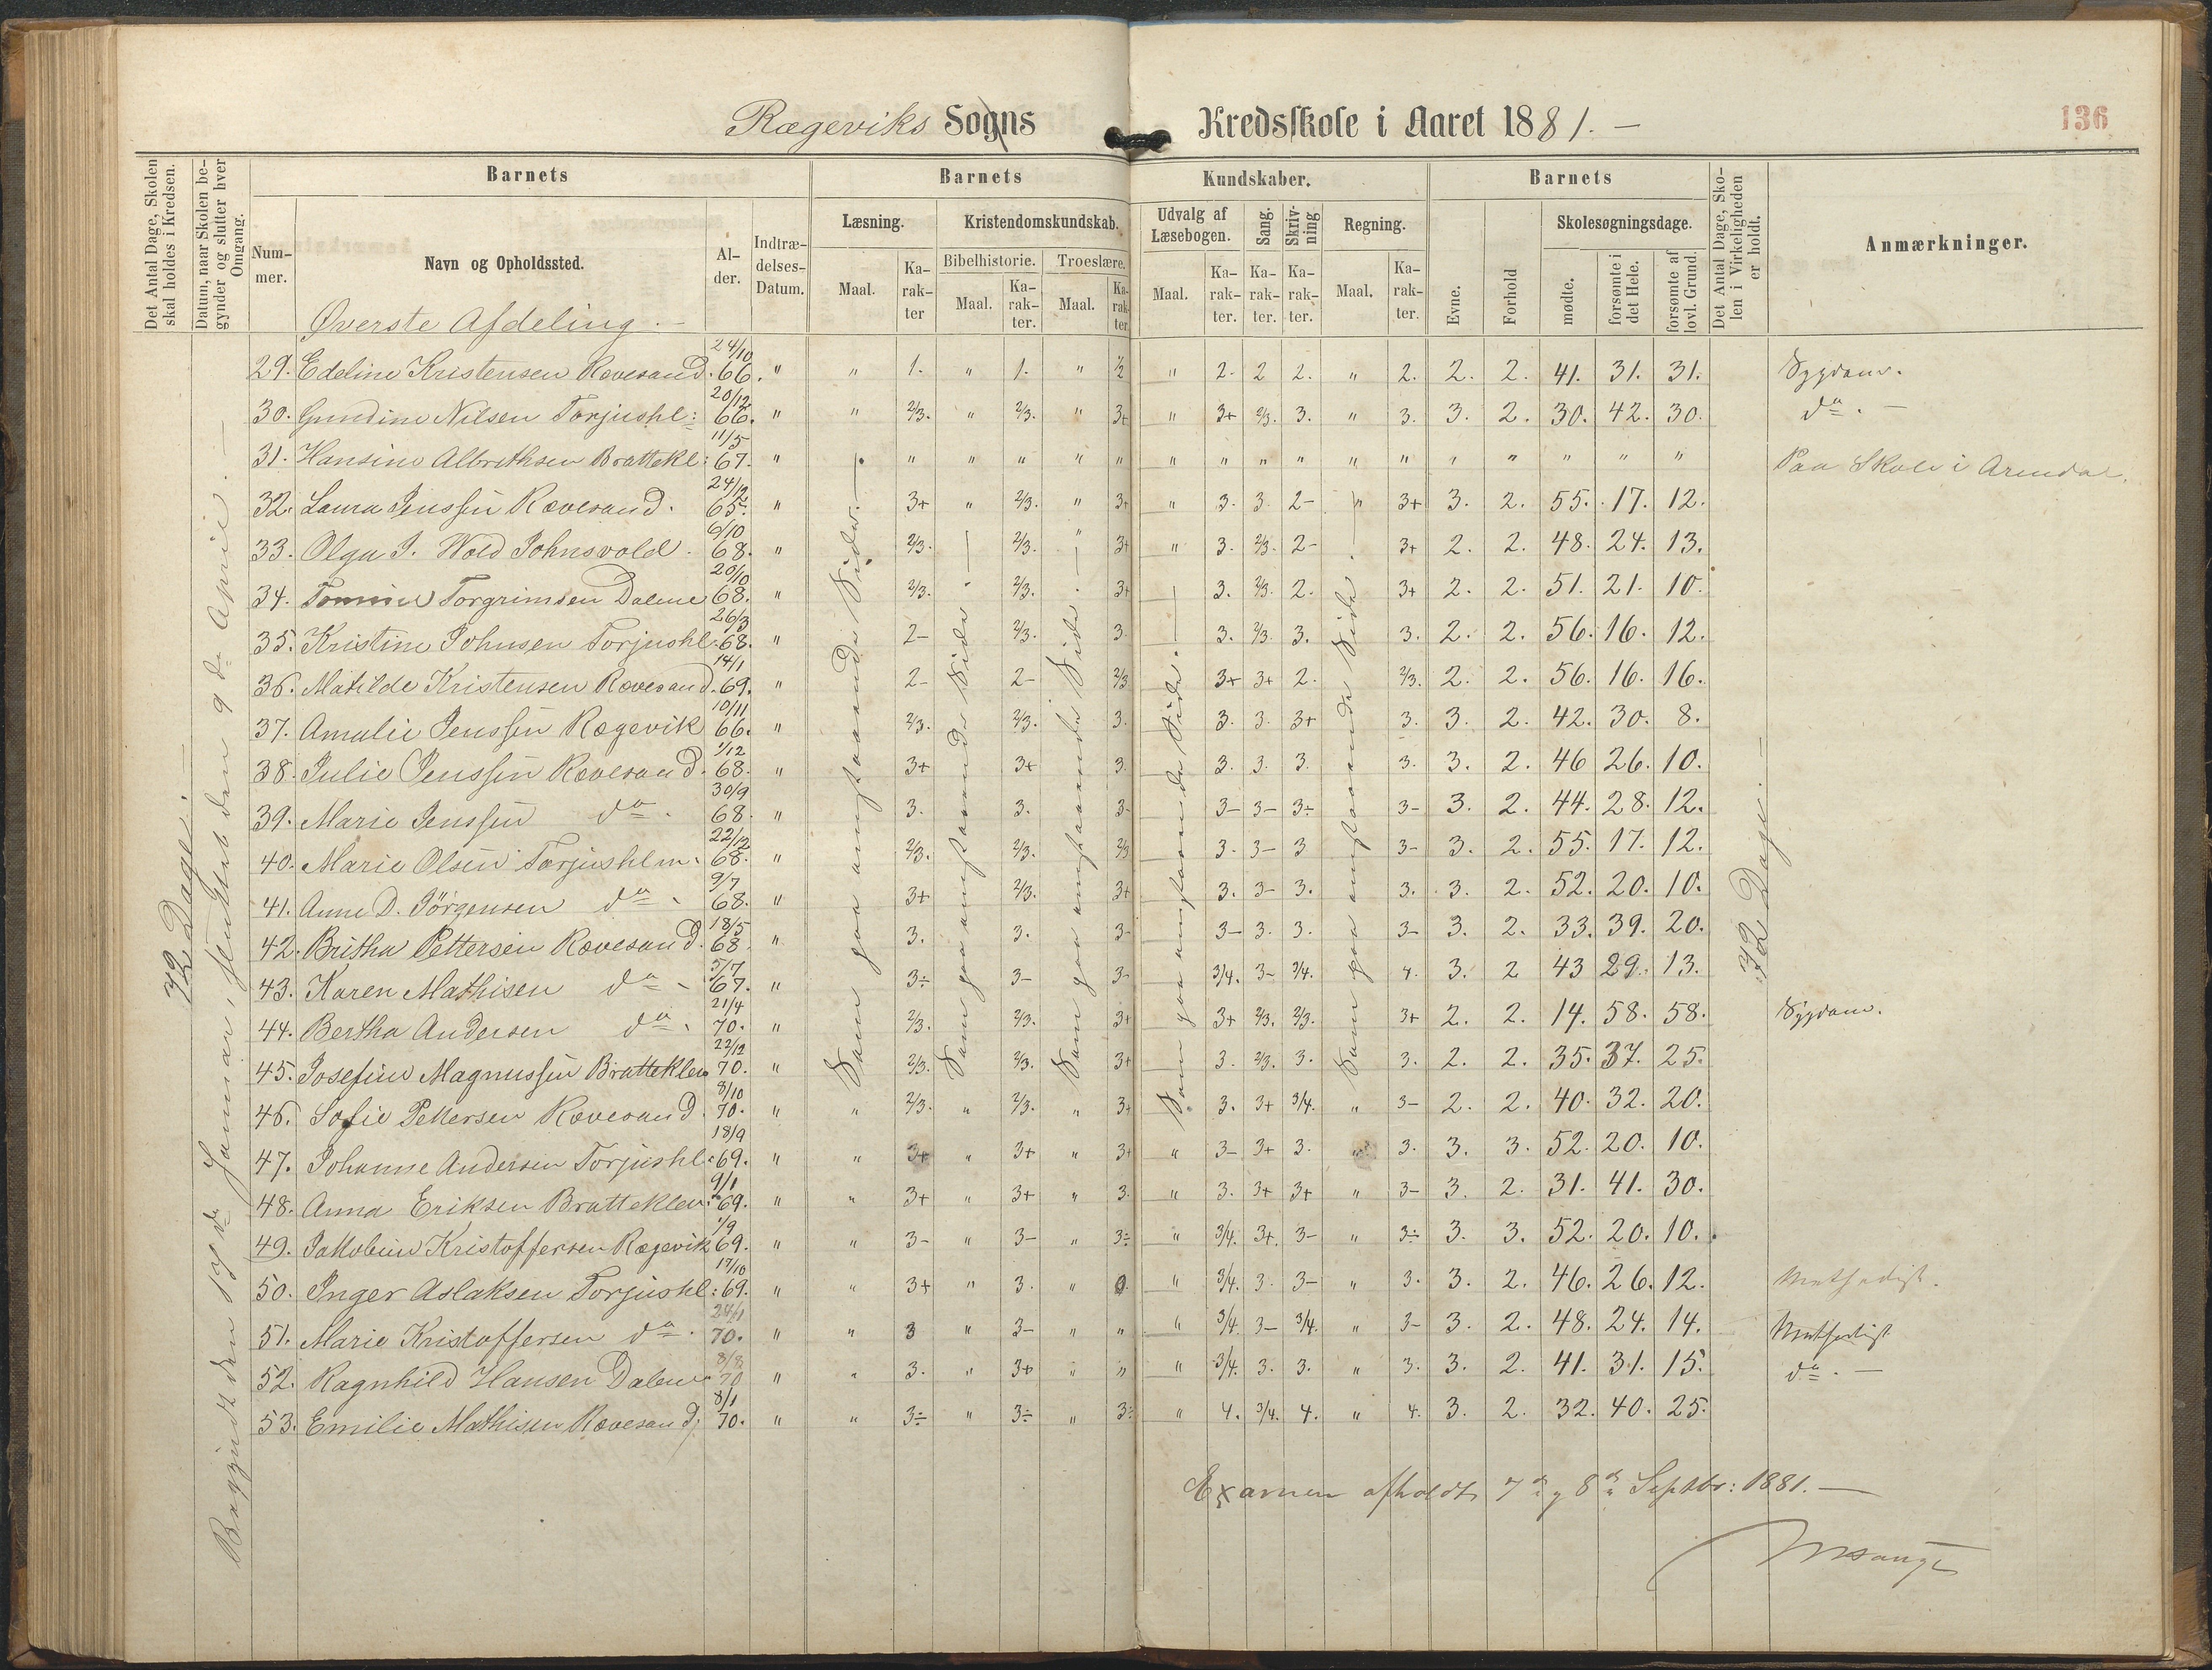 Rægeviks Sogns Kredsskole i Aaret 1881. —
136
Det Antal Dage, Skolen skal holdes i Kredsen.
Datum, naar Skolen begynder og slutter hver Omgang.
Barnets
Barnets
Kundskaber.
Barnets
Det Antal Dage, Skolen i Virkeligheden er holdt.
Anmærkninger.
Nummer.
Navn og Opholdssted.
Alder.
Indtrædelses-Datum.
Læsning.
Kristendomskundskab.
Udvalg af Læsebogen.
Sang.
Skrivning
Regning.
Evne.
Forhold
Skolesøgningsdage.
Bibelhistorie.
Troeslære.
Maal.
Karakter
Maal.
Karakter.
Maal.
Karakter
Maal.
Karakter.
Karakter.
Karakter.
Maal.
Karakter.
mødte.
forsømte i det Hele.
forsømte af lovl. Grund.
Øverste Afdeling. —
72 Dage. —
Begyndt den 19de Januar, sluttet den 9de April. —
29. Edeline Kristensen Rævesand. 24/10 66. " " 1. " 1. " ½ " 2. 2 2. " 2. 2. 2. 41. 31. 31. Sygdom.
30. Gundine Nilsen Torjushl: 20/12 66. " " 2/3. " 2/3. " 3+ " 3+ 2/3. 3. " 3. 3. 2. 30. 42. 30. da. —
31. Hansine Albrethsen Brattekl: 11/5 67. " " " " " " " " " " " " " " " " " Paa Skole i Arendal.
32. Laura Jenssen Rævesand. 24/12 65. " 3+ " 2/3. " 3+ " 3. 3. 2- " 3+ 3. 2. 55. 17. 12.
33. Olga J. Wold Johnsvold. 6/10 68. " 2/3. 2/3. " 3+ " 3. 2/3. 2- 3+ 2. 2. 48. 24. 13.
34. Tomine Torgrimsen Dalene 20/10 68. " 2/3. 2/3. 3+ 3. 2/3. 2. 3+ 2. 2. 51. 21. 10.
35. Kristine Johnsen Torjushl. 26/3 68. " 2- 2/3. 3. 3. 2/3. 3. 3. 2. 2. 56. 16. 12.
36. Matilde Kristensen Rævesand. 14/1 69. " 2- 2- 2/3 3+ 3+ 2. 2/3. 2. 2. 56. 16. 16.
37. Amalie Jenssen Rægevik 10/11 66. " 2/3. 2/3. 3. 3. 3. 3+ 3. 3. 2. 42. 30. 8.
38. Julie Jenssen Rævesand. 1/12 68. " 3+ 3+ 3. 3. 3. 3. 3. 3. 2. 46 26. 10.
39. Marie Jenssen da. 30/9 68. " 3. 3. 3- 3- 3- 3÷ 3- 3. 2. 44. 28. 12.
40. Marie Olsen Torjushlm. 22/12 68. " 2/3. 2/3. 2/3 3. 3- 3 3- 3. 2. 55. 17. 12.
41. Anne D. Jörgensen da. 9/7 68. " 3+ 2/3. 3+ 3. 3- 3. 3. 3. 2. 52. 20. 10.
42. Britha Pettersen Rævesand. 18/5 68. " 3. 3. 3- 3- 3. 3. 3- 3. 2. 33. 39. 20.
43. Karen Mathisen da. 5/7 67. " 3÷ 3- 3- 3/4. 3- 3/4. 4. 3. 2 43 29. 13.
44. Bertha Andersen da. 21/4 70. " 2/3. 2/3. 3+ 3+ 2/3. 2/3. 3+ 2. 2. 14. 58. 58. Sygdom.
45. Josefine Magnussen Bratteklev 22/12 70. " 2/3. 2/3. 3+ 3. 2/3. 3. 3. 2. 2. 35. 37. 25.
46. Sofie Pettersen Rævesand. 8/10 70. " " 2/3. " 2/3. " 3+ 3. 3+ 3/4. " 3- 2. 2. 40. 32. 20.
47. Johanne Andersen Torjushl. 18/9 69. " " 3+ " 3+ " 3+ " 3- 3+ 3. " 3. 3. 3. 52. 20. 10.
48. Anna Eriksen Bratteklev. 9/1 69. " " 3+ " 3+ " 3. " 3. 3+ 3+ " 3- 3. 2. 31. 41. 30.
49. Jakobine Kristoffersen Rægevik 1/9 69. " " 3- " 3- " 3÷ " 3/4. 3+. 3- " 3÷ 3. 3. 52. 20. 10.
50. Inger Aslaksen Torjushl: 17/10 69. " " 3+ " 3. " 0. " 3/4. 3. 3- " 3. 3. 2. 46. 26. 12. Methodist.
51. Marie Kristoffersen da. 24/1 70. " " 3 " 3- " " " 3/4. 3- 3/4. " 3- 3. 2. 48. 24. 14. Methodist
52. Ragnhild Hansen Dalene 8/8 70 " " 3. " 3+ " " " 3/4. 3. 3. " 3. 3. 2. 41. 31. 15. da. —
53. Emilie Mathisen Rævesand. 8/1 70. " " 3÷ " 3÷ " 3÷ " 4. 3/4. 4. " 4. 3. 2. 32. 40. 25.
Som paa omstaaende Sider. —
Som paa omstaaende Side. —
Som paa omstaaende Side. —
Som paa omstaaende Side. —
Som paa omstaaende Side.
72 Dage. —
Examen afholdt 7de og 8de Septbr: 1881. —